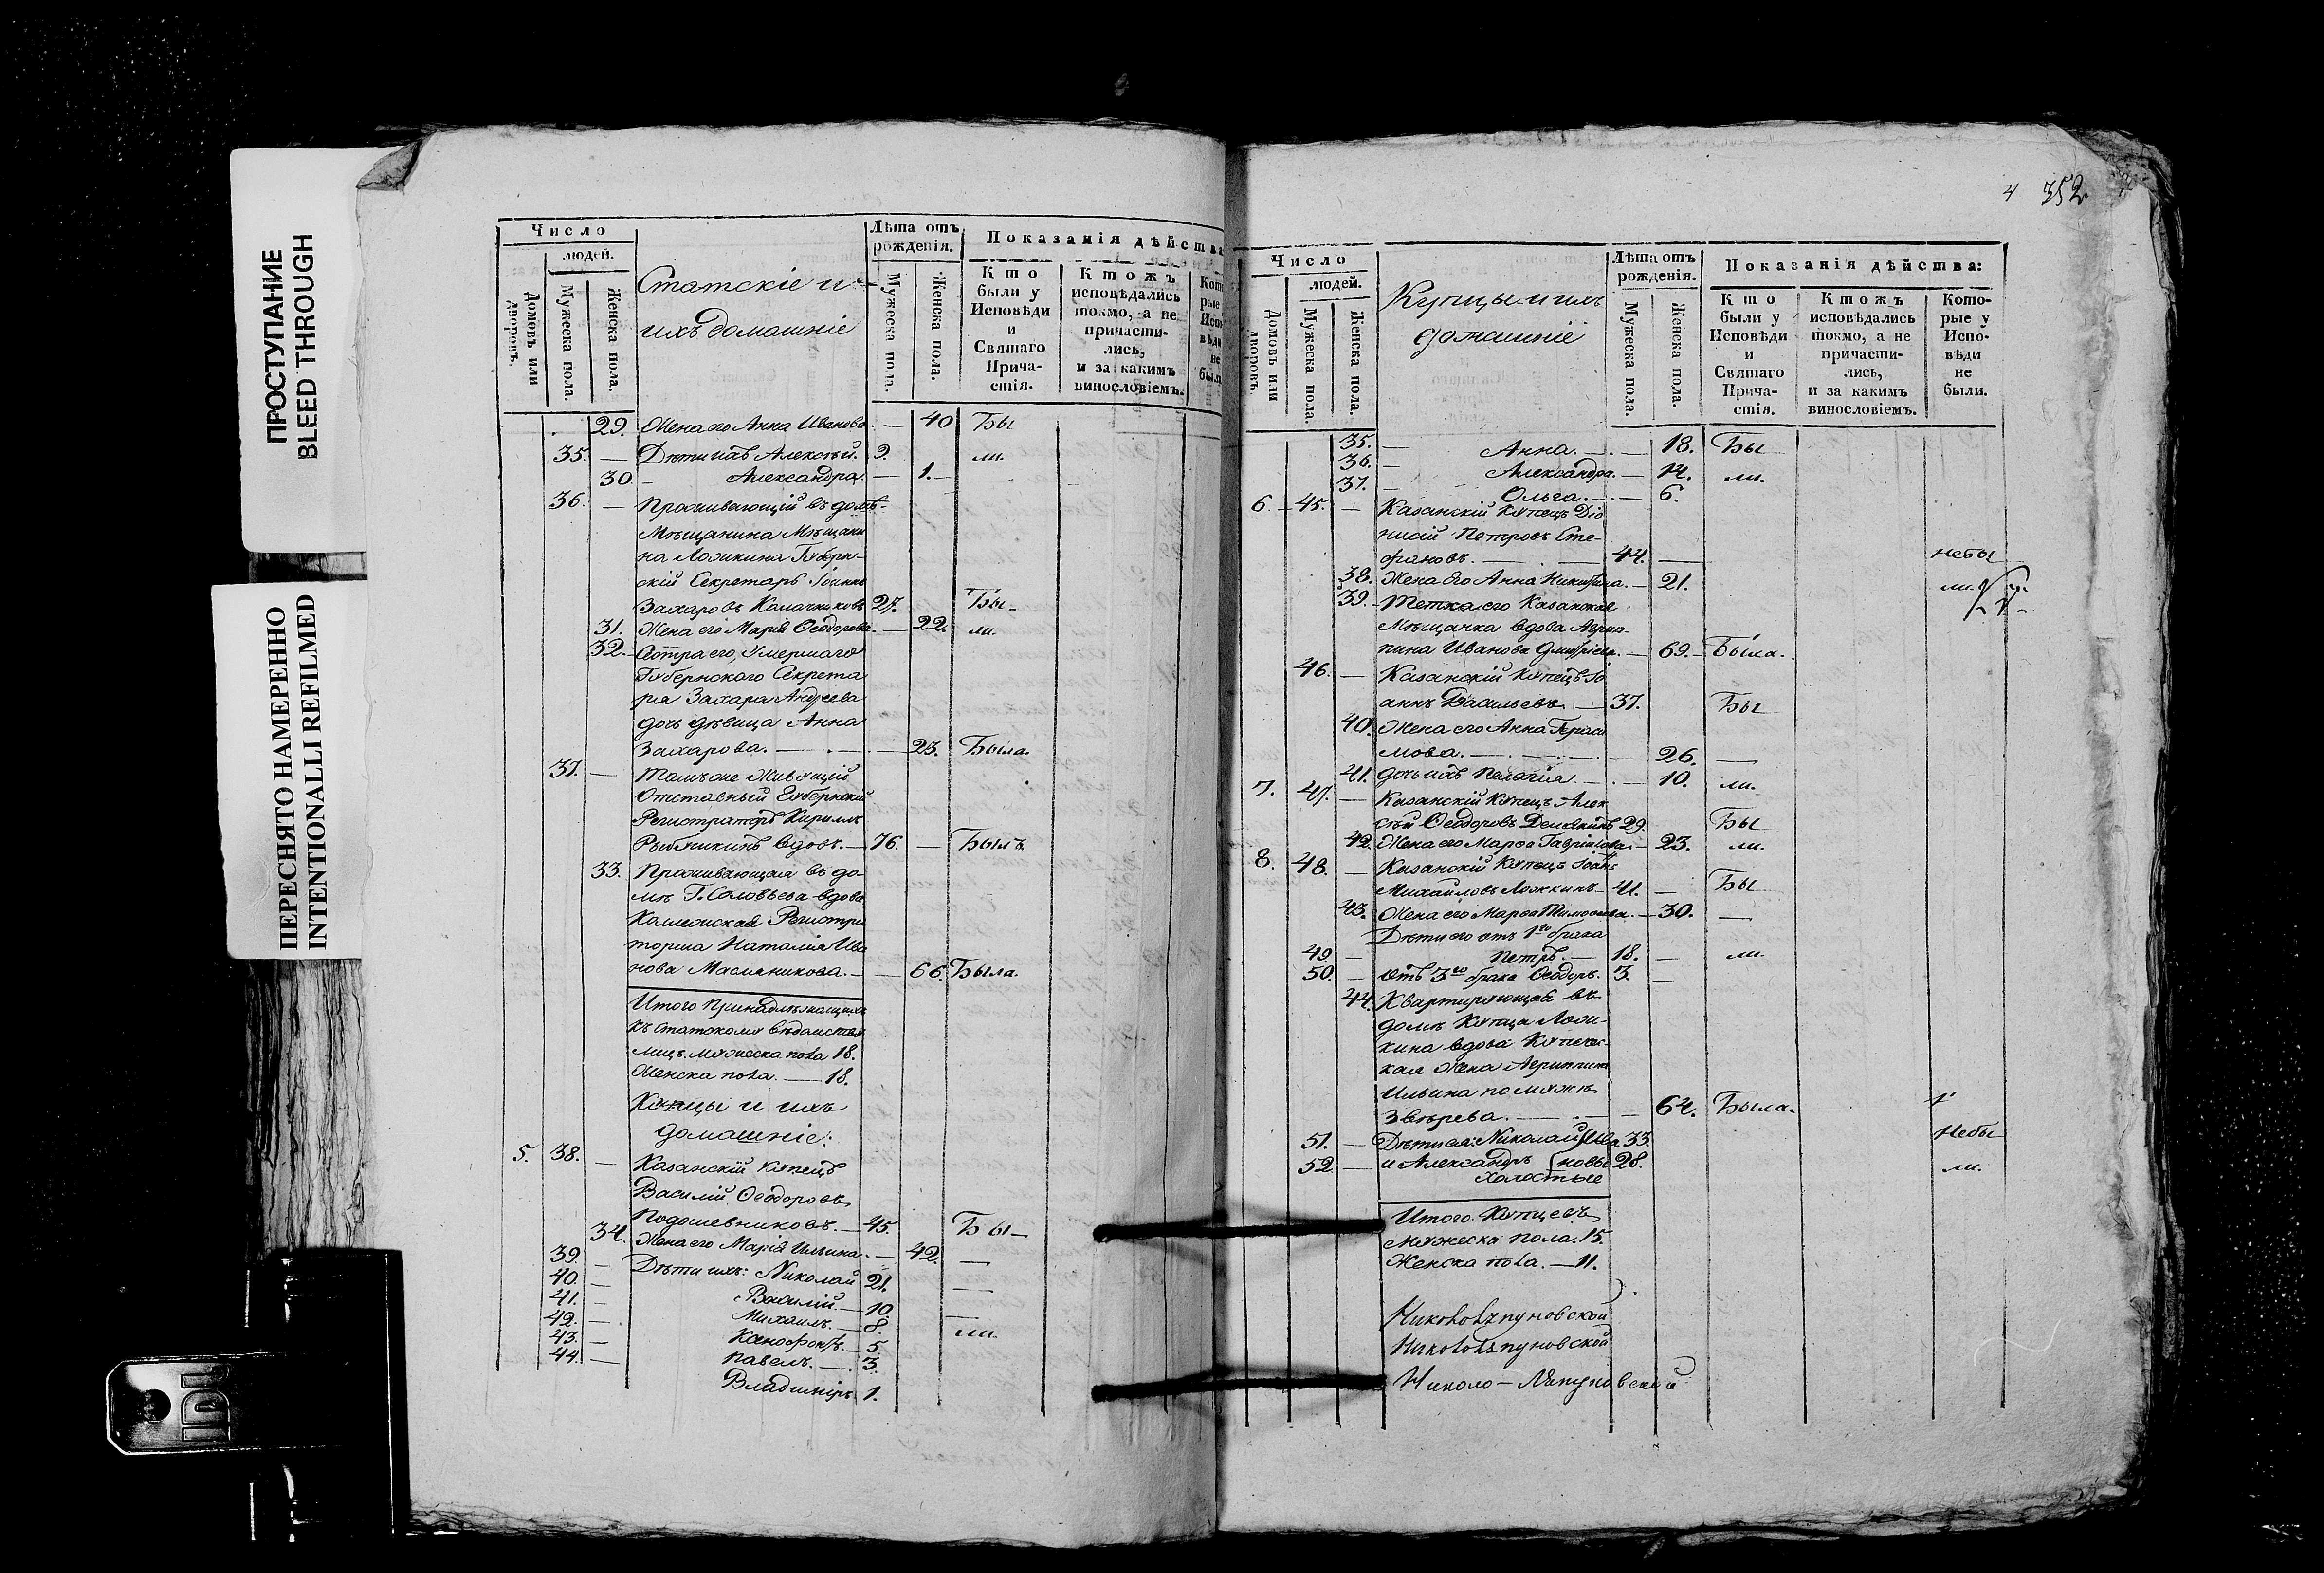 ПРОСТУПАНИЕ
BLEED THROUGH
ПЕРЕСНЯТО НАМЕРЕННО
INTENTIONALLI REFILMED
Число
людей.
Домовъ или дворовъ.
Мужеска пола.
Женска пола.
Статскіе и
ихъ домашніе
Лѣта отъ рожденія.
Мужеска пола.
Женска пола.
Показанія дѣйства
Кто были у Исповѣди и Святаго Причастія.
Ктожъ исповѣдались токмо, а не причастились, и за какимъ винословіемъ.
29. Жена его Анна Иванова. — 40 Бы
35. — Дѣти ихъ Алексѣй. 9. ли.
30. — Александра. — 1. —
36. — Проживающій въ домѣ
Мѣщанина Мѣщани
на Ложкина Губерн-
скій Секретарь Іоаннъ
Захаровъ Калачниковъ 27. Бы-
31. Жена его Марія Ѳеодорова. — 22. ли.
32. Сестра его, Умершаго
Губернскаго Секрета
ря Захара Андреева
дочь дѣвица Анна
Захарова. — 23. Была.
37. — Тамъ же Живущій
Отставный Губернскій
Регистраторъ Кириллъ
Рыбушкинъ вдовъ. — 76. — Былъ
33. Проживающая въ до-
мѣ Г. Соловьева вдова
Коллежская Регистра
торша Наталія Ива
нова Масляникова. — 66. Была.
Итого Принадлежащихъ
къ Статскому вѣдомству
лицъ Мужеска пола 18.
Женска пола. — 18.
Купцы и ихъ
домашніе:
5. 38. — Казанскій Купецъ
Василій Ѳеодоровъ
Подошевниковъ. — 45. Бы-
34. Жена его Марія Ильина. — 42. —
39. — Дѣти ихъ: Николай 21. —
40. — Василій. — 10. —
41. — Михаилъ. — 8.
42. — Ксенофонтъ. — 5 ли.
43. — Павелъ. — 3.
44. — Владиміръ 1.
4 352
Число
людей.
Домовъ или дворовъ.
Мужеска пола.
Женска пола.
Купцы и ихъ
домашніе
Лѣта отъ рожденія.
Мужеска пола.
Женска пола.
Показанія дѣйства:
Кто были у Исповѣди и Святаго Причастія.
Ктожъ исповѣдались токмо, а не причастились, и за какимъ винословіемъ.
Которые у Исповѣди не были.
35. — Анна. — 18. Бы
36. — Александра. — 14. ли.
37. — Ольга. — 6.
6. 45. — Казанскій Купецъ Діо
нисій Петровъ Сте-
фановъ. — 44. — небы
38. Жена его Анна Никитина. — 21. ли.
39. — Тетка его Казанская
Мѣщанка вдова Агрип-
пина Иванова Дмитріева. — 69. Была.
46. — Казанскій Купецъ Іо
аннъ Васильевъ — 37. Бы
40. Жена его Анна Гераси
мова. — 26. —
41. дочь ихъ Пелагія. — 10. ли.
7. 47. — Казанскій Купецъ Алек
сѣй Ѳеодоровъ 29. Бы
42. Жена его Марѳа Гавріилова. — 23. ли.
8. 48. — Казанскій Купецъ Іоаннъ
Михайловъ Ложкинъ — 41. — Бы
43. Жена его Марѳа Тимоѳеева. — 30. —
Дѣти его отъ 1го брака
49. — Петръ. — 18. — ли.
50. — отъ 3го брака Ѳеодоръ. 3. —
44. Квартирующая въ
домѣ Купца Лож-
кина вдова Купечес-
кая Жена Агриппина
Ильина по мужѣ
Звѣрева. — 64. Была.
51. — Дѣти ея: Николай Ива 33. Небы
52. — и Александръ новы 28. ли.
Холостые
Итого Купцевъ
Мужеска пола. 15.
Женска пола. — 11.
Никололяпуновской
Никололяпуновской
Николо-Ляпуновской